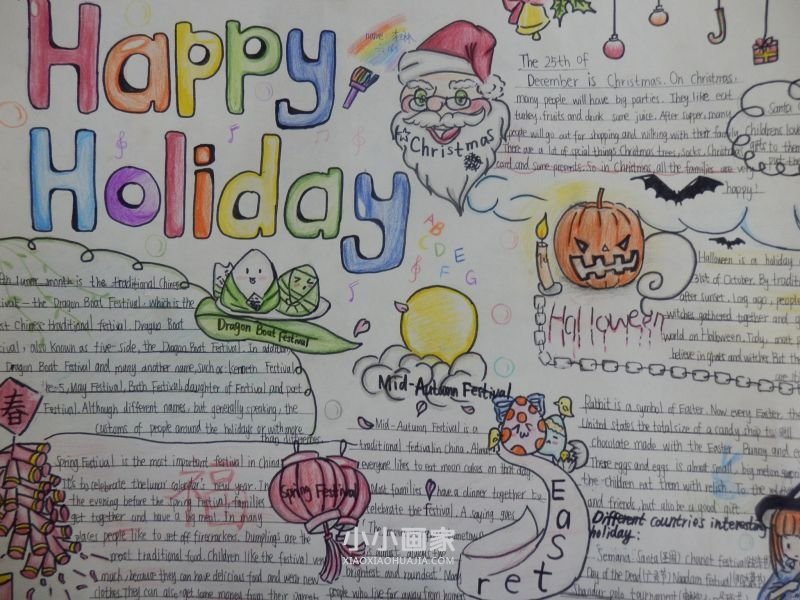 Happy
Holiday
name:
Christmas
The 25th of
December is Christmas. On Christmas,
many people will have big parties. They like eat
turkey, fruits and drink some juice. After supper, many
people will go out for shopping and walking with their family
There are a lot of spcial things Christmas trees, socks, Christmas
card and some presents. So in Christmas, all the families are very
happy!
Santa
childrens
gifts to them
A B C D E F G
Halloween
Halloween is a holiday
31st of October. By tradit
after sunset. Long ago, people
witches gathered together and
world on Halloween. Today, most
believe in ghosts and witches But the
Dragon Boat Festival
lunar month is the traditional Chinese
the Dragon Boat Festival, which is the
Chinese traditional festival. Dragon Boat
also known as five-side, the Dragon Boat Festival. In addition
Dragon Boat Festival and many another name, such as: Festival
May Festival, Bath Festival, daughter of Festival and poet
Festival. Although different names, but generally speaking, the
customs of people around the holidays or with more
than differences
Mid-Autumn Festival
Mid-Autumn Festival is a
traditional festival in China. Almost
everyone likes to eat moon cakes on that day
Most families have a dinner together to
celebrate the festival. A saying goes
The
brightest and roundest. Many
people who live far away from homes
春
福
Spring Festival
Spring Festival is the most important festival in China
It's to celebrate the lunar calendar's new year. In
the evening before the Spring Festival, families
get together and have a big meal. In many
places people like to set off firecrackers. Dumplings are the
most traditional food. Children like the festival very
much, because they can have delicious food and wear new
clothes they can also get some money from their
Easter
Rabbit is a symbol of Easter. Now every Easter, the
United states the total size of a candy shop to sell
chocolate made with the Easter Bunny and
These eggs and eggs is almost small, big melon
the children eat them with relish.
and friends, but also be a good gift.
Different countries interesting
holiday:
Semana Santa Charest festival
Day of the Dead Naadam Festival
Shandur polo tournament
小小画家
XIAOXIAOHUAJIA.COM